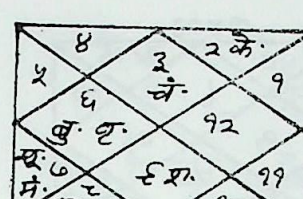 ४
३
चं.
२ के.
५
१
६
बु. शु.
१२
सू.
७
मं.
९ श.
११